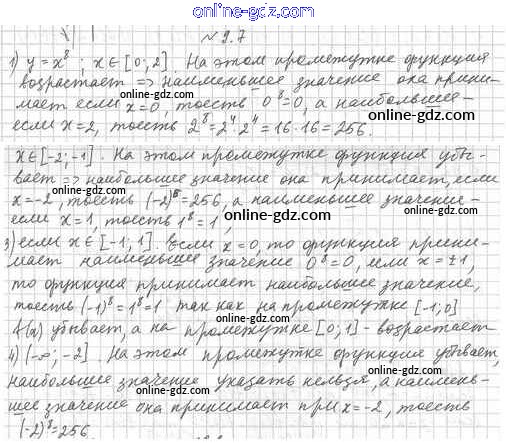 online-gdz.com
№ 9.7
1) y=x⁸; x∈[0;2]. На этом промежутке функция
возрастает => наименьшее значение она прини-
online-gdz.com
мает если x=0, тоесть 0⁸=0, а наибольшее –
online-gdz.com
если x=2, тоесть 2⁸=2⁴·2⁴=16·16=256.
online-gdz.com
x∈[-2;-1]. На этом промежутке функция убы-
вает => наибольшее значение она принимает, если
online-gdz.com
x=-2, тоесть (-2)⁸=256, а наименьшее значение –
online-gdz.com
если x=1, тоесть 1⁸=1,
online-gdz.com
3) если x∈[-1;1]. Если x=0, то функция прини-
мает наименьшее значение 0⁸=0, если x=±1,
online-gdz.com
то функция принимает наибольшее значение,
тоесть (-1)⁸=1⁸=1 так как на промежутке [-1;0]
online-gdz.com
f(x) убывает, а на промежутке [0;1] – возрастает
online-gdz.com
4) (-∞;-2]. На этом промежутке функция убывает,
наибольшее значение указать нельзя, а наимень-
online-gdz.com
шее значение она принимает при x=-2, тоесть
(-2)⁸=256.
online-gdz.com